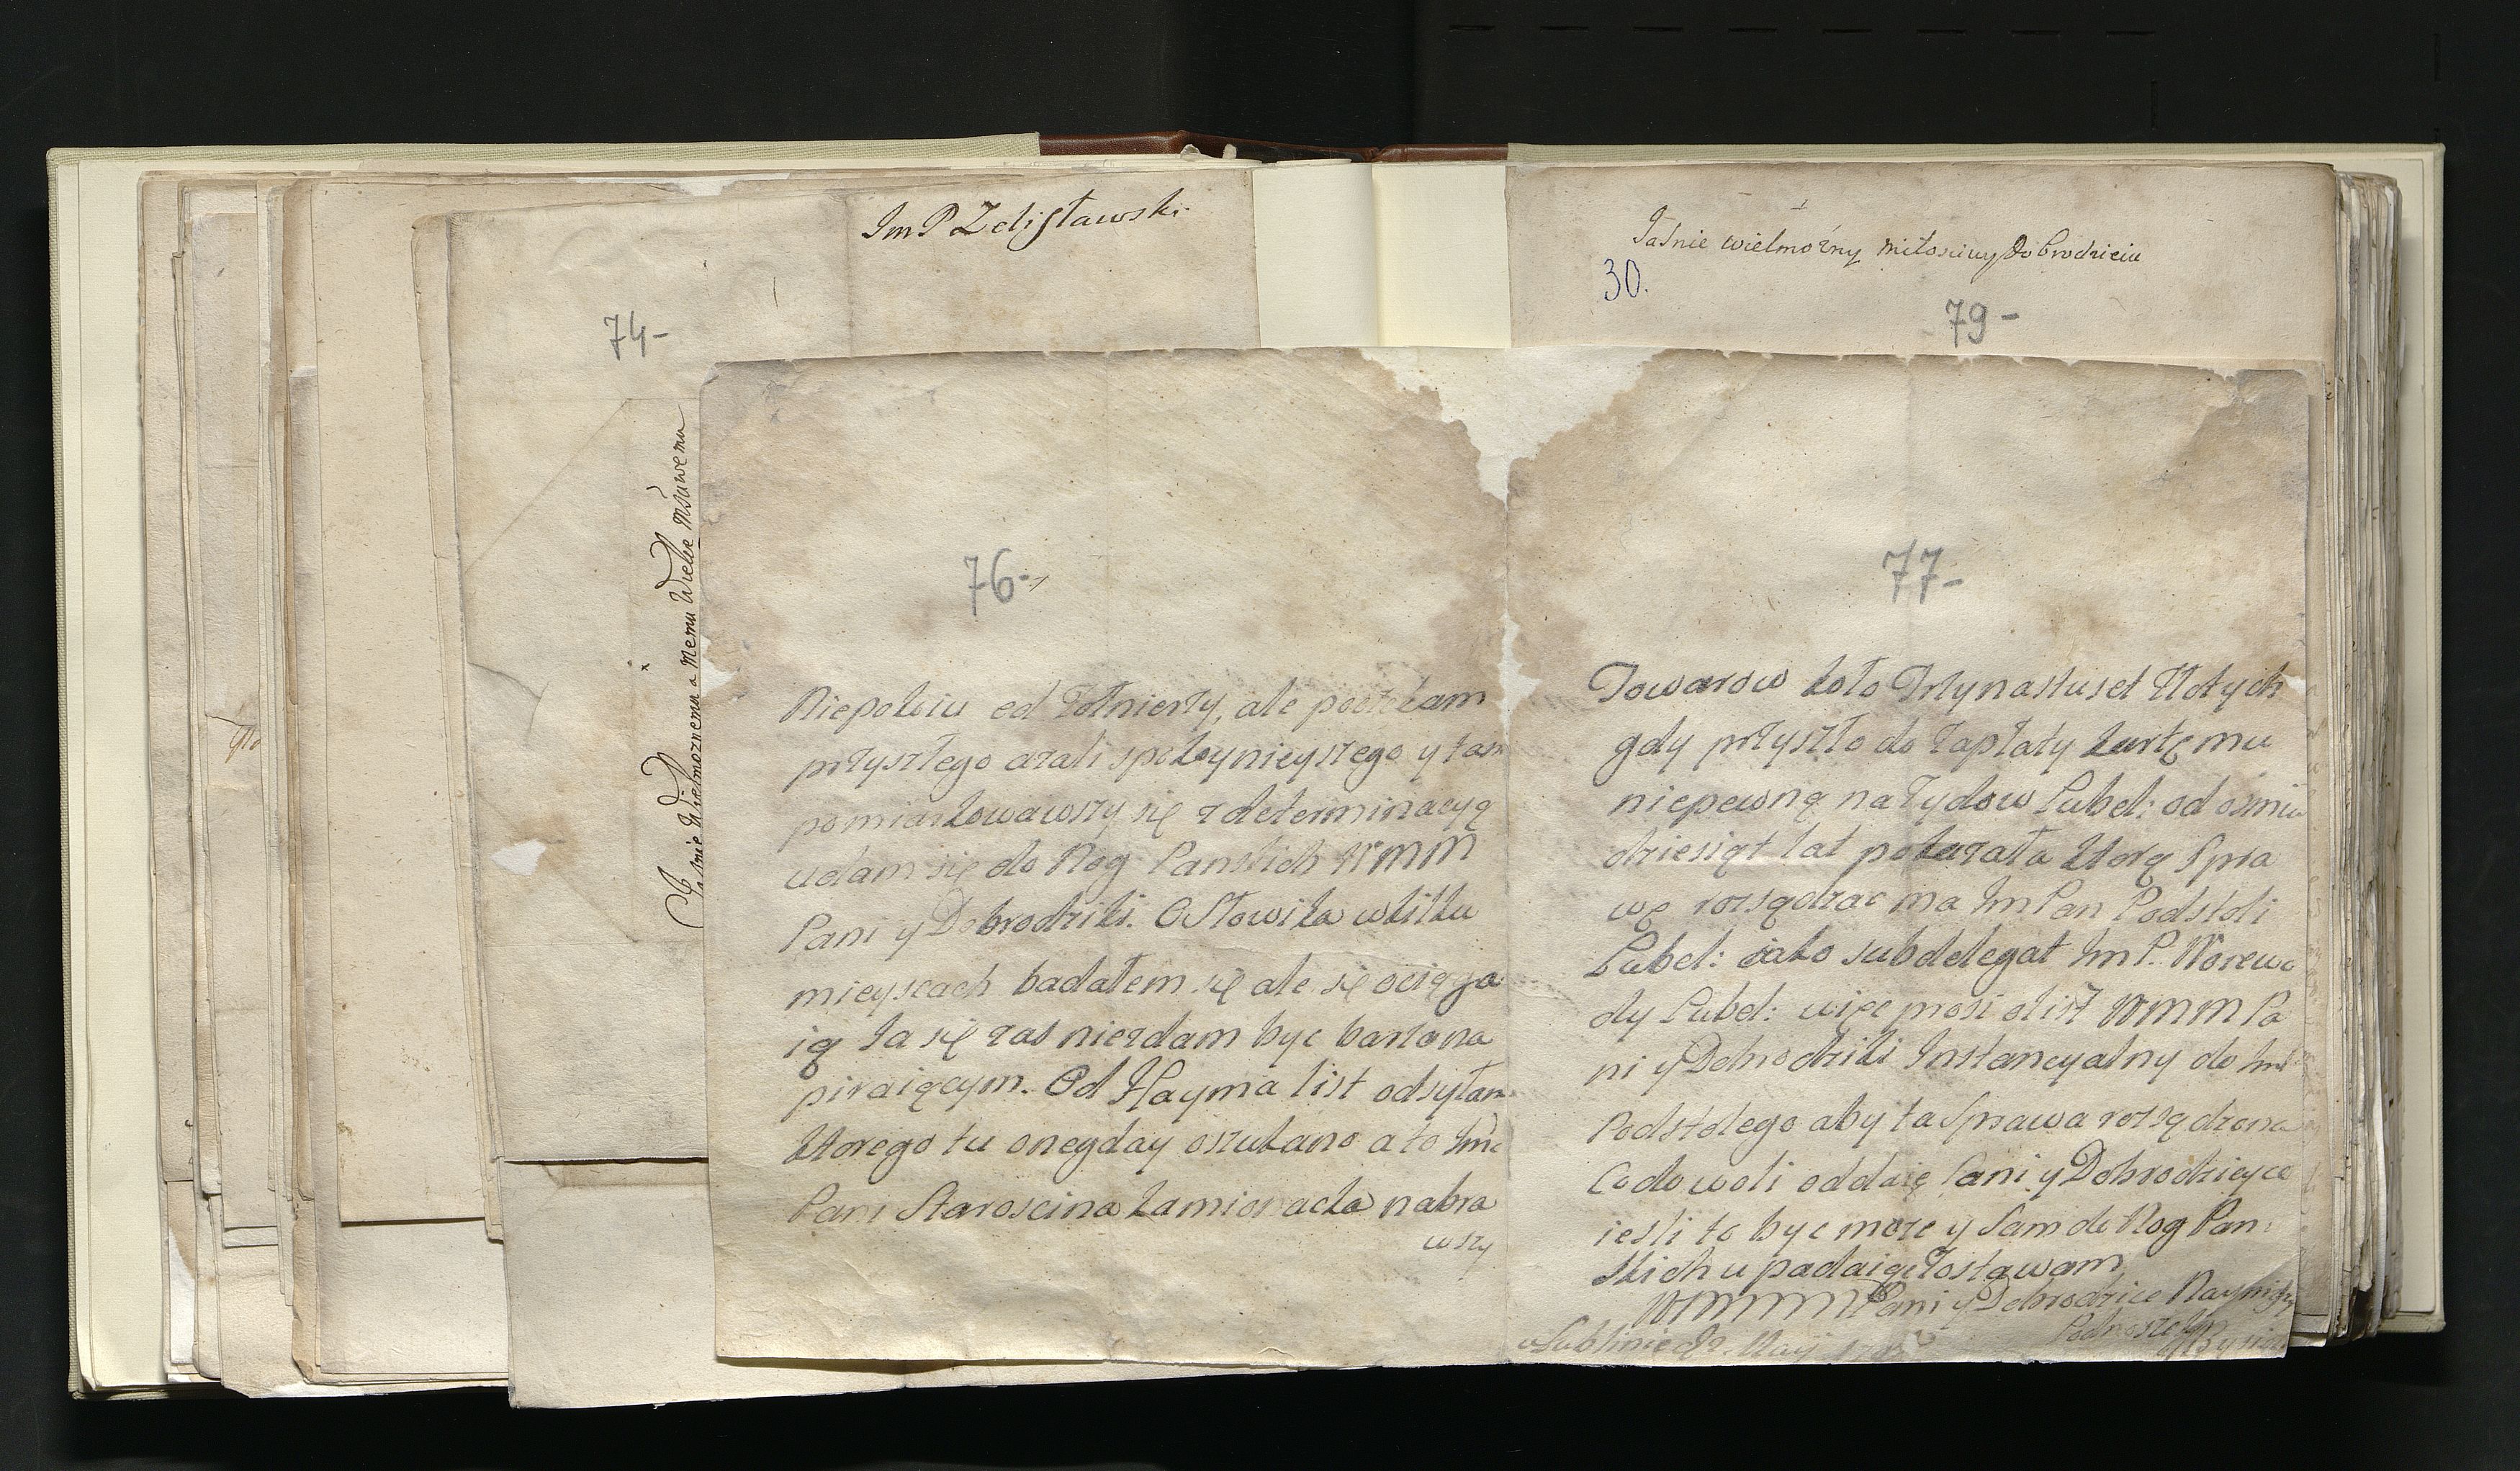 Im P Zdisławski
74-
Jaśnie Wielmoznemu a Memu Wielce Mściwemu
Jaśnie wielmożny miłosciwy Dobrodzieiu
30.
79-
76-
Niepokoiu od Zołnierzy, ale poczekam
przyszłego azali spokoynieyszego y tam
pomiarkowawszy się z determinacyą
udam się do Nog Panskich WMM
Pani y Dobrodziki. O Słowika w kilku
mieyscach badałem się ale się ociąga
ią Ja się zas niezdam byc barzo na
piraiącym. Od Hayma list odsyłam
ktorego tu onegday oszukano a to Jmc
Pani Staroscina kamionacka nabra
wszy
77-
Towarow koło Trzynastuset Złotych
gdy przyszło do zapłaty kartę mu
niepewną na Zydow Lubel: od osmiu
dziesiąt lat pokazała ktorą Spra
wę rozsądzac ma Im Pan Podstoli
Lubel: iako subdelegat Im P. Woiewo
dy Lubel: więc prosi o list WMM Pa
ni y Dobrodziki Instancyalny do Im
Podstolego aby ta Sprawa rozsądzona
Co do woli oddaię Pani y Dobrodzieyce
iesli to byc moze y Sam do Nog Pan:
skich upadaiąc Zostawam
Pani y Dobrodzice Nayniższy
w Lublinie d Maij Podnoszek